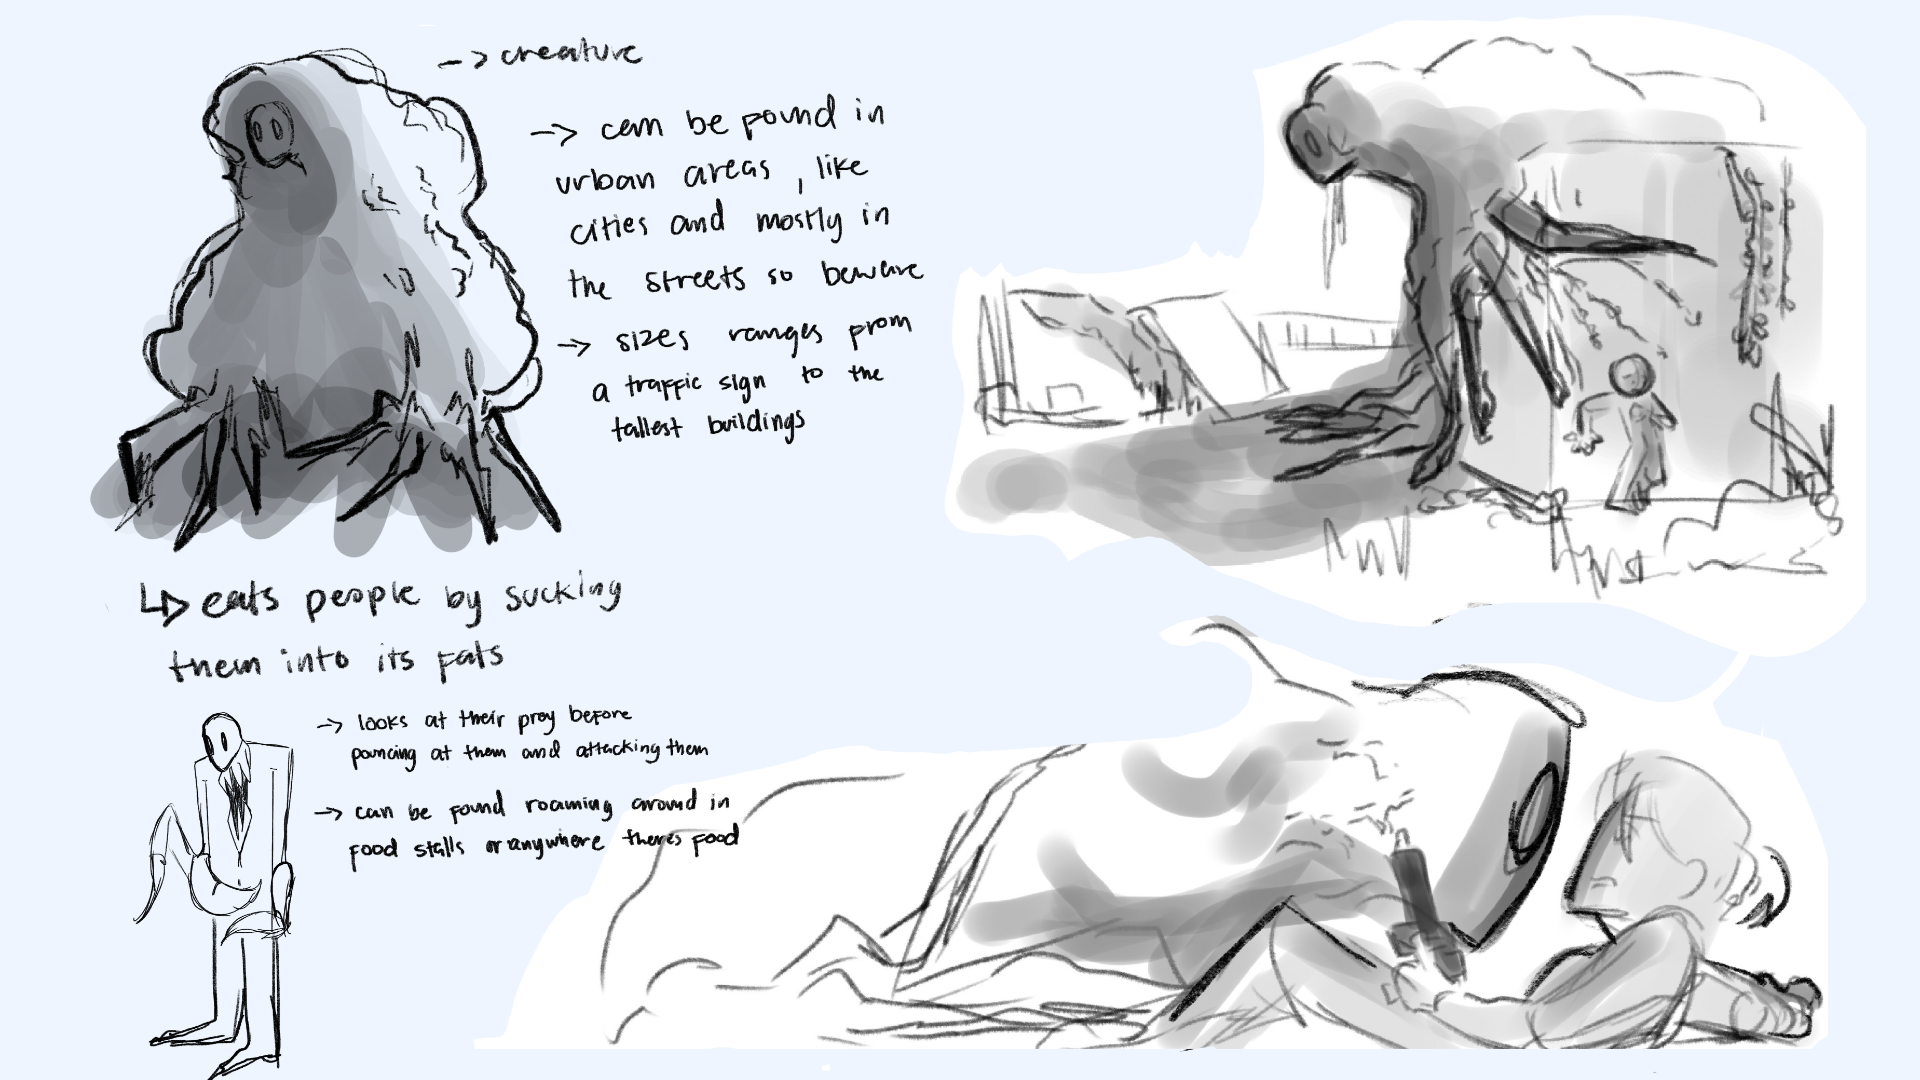 -> creature
-> can be found in
urban areas, like
cities and mostly in
the streets so beware
-> sizes ranges from
a traffic sign to the
tallest buildings
↳ eats people by sucking
them into its fats
-> looks at their prey before
pouncing at them and attacking them
-> can be found roaming around in
food stalls or anywhere theres food